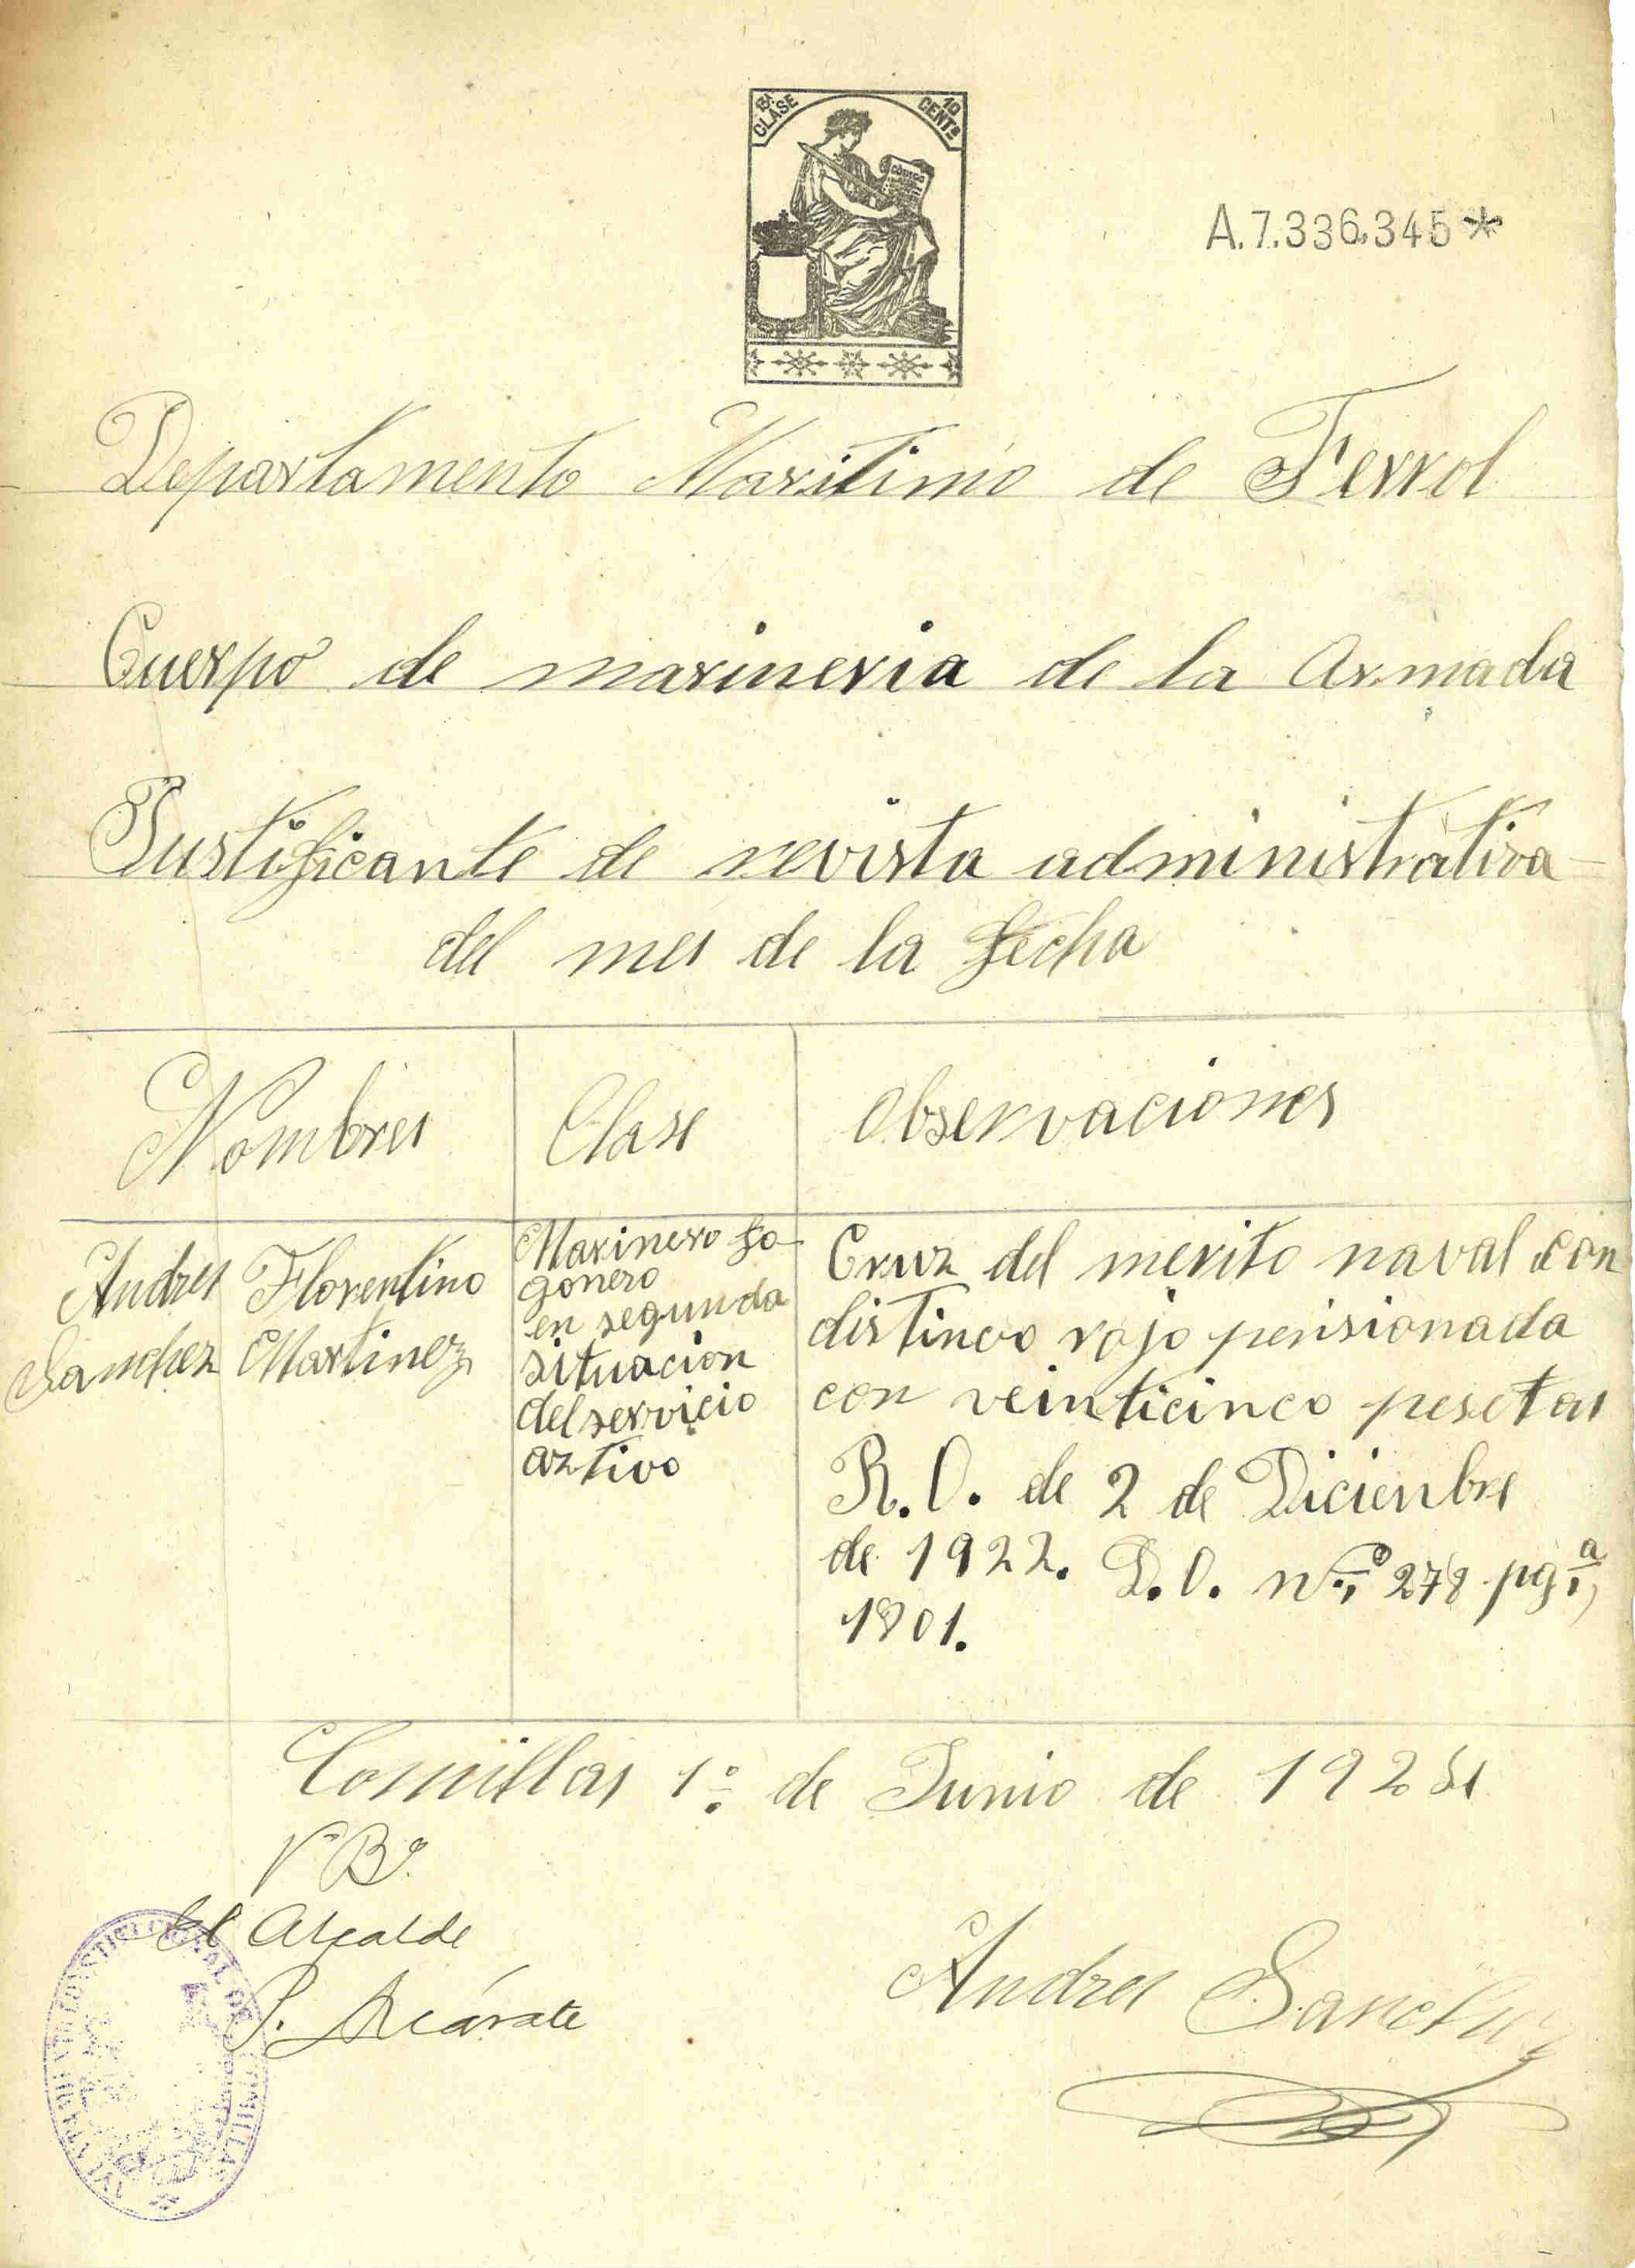 13ª CLASE
10 CENTS
CODIGO
A.7.336.345*
Departamento Maritimo de Ferrol
Cuerpo de marineria de la Armada
Justificante de revista administrativa
del mes de la fecha
Nombres
Clase
Observaciones
Andres Florentino
Sanchez Martinez
Marinero fo-
gonero
en segunda
situacion
del servicio
aztivo
Cruz del merito naval con
distinvo rojo pensionada
con veinticinco pesetas
R.O. de 2 de Diciembre
de 1922. D.O. nº 278 pgª,
1801.
Comillas 1º de Junio de 192
Vº Bº
El Alcalde
P. Azcárate
Andres Sanchez
CONSTITUCIONAL DE COMILLAS